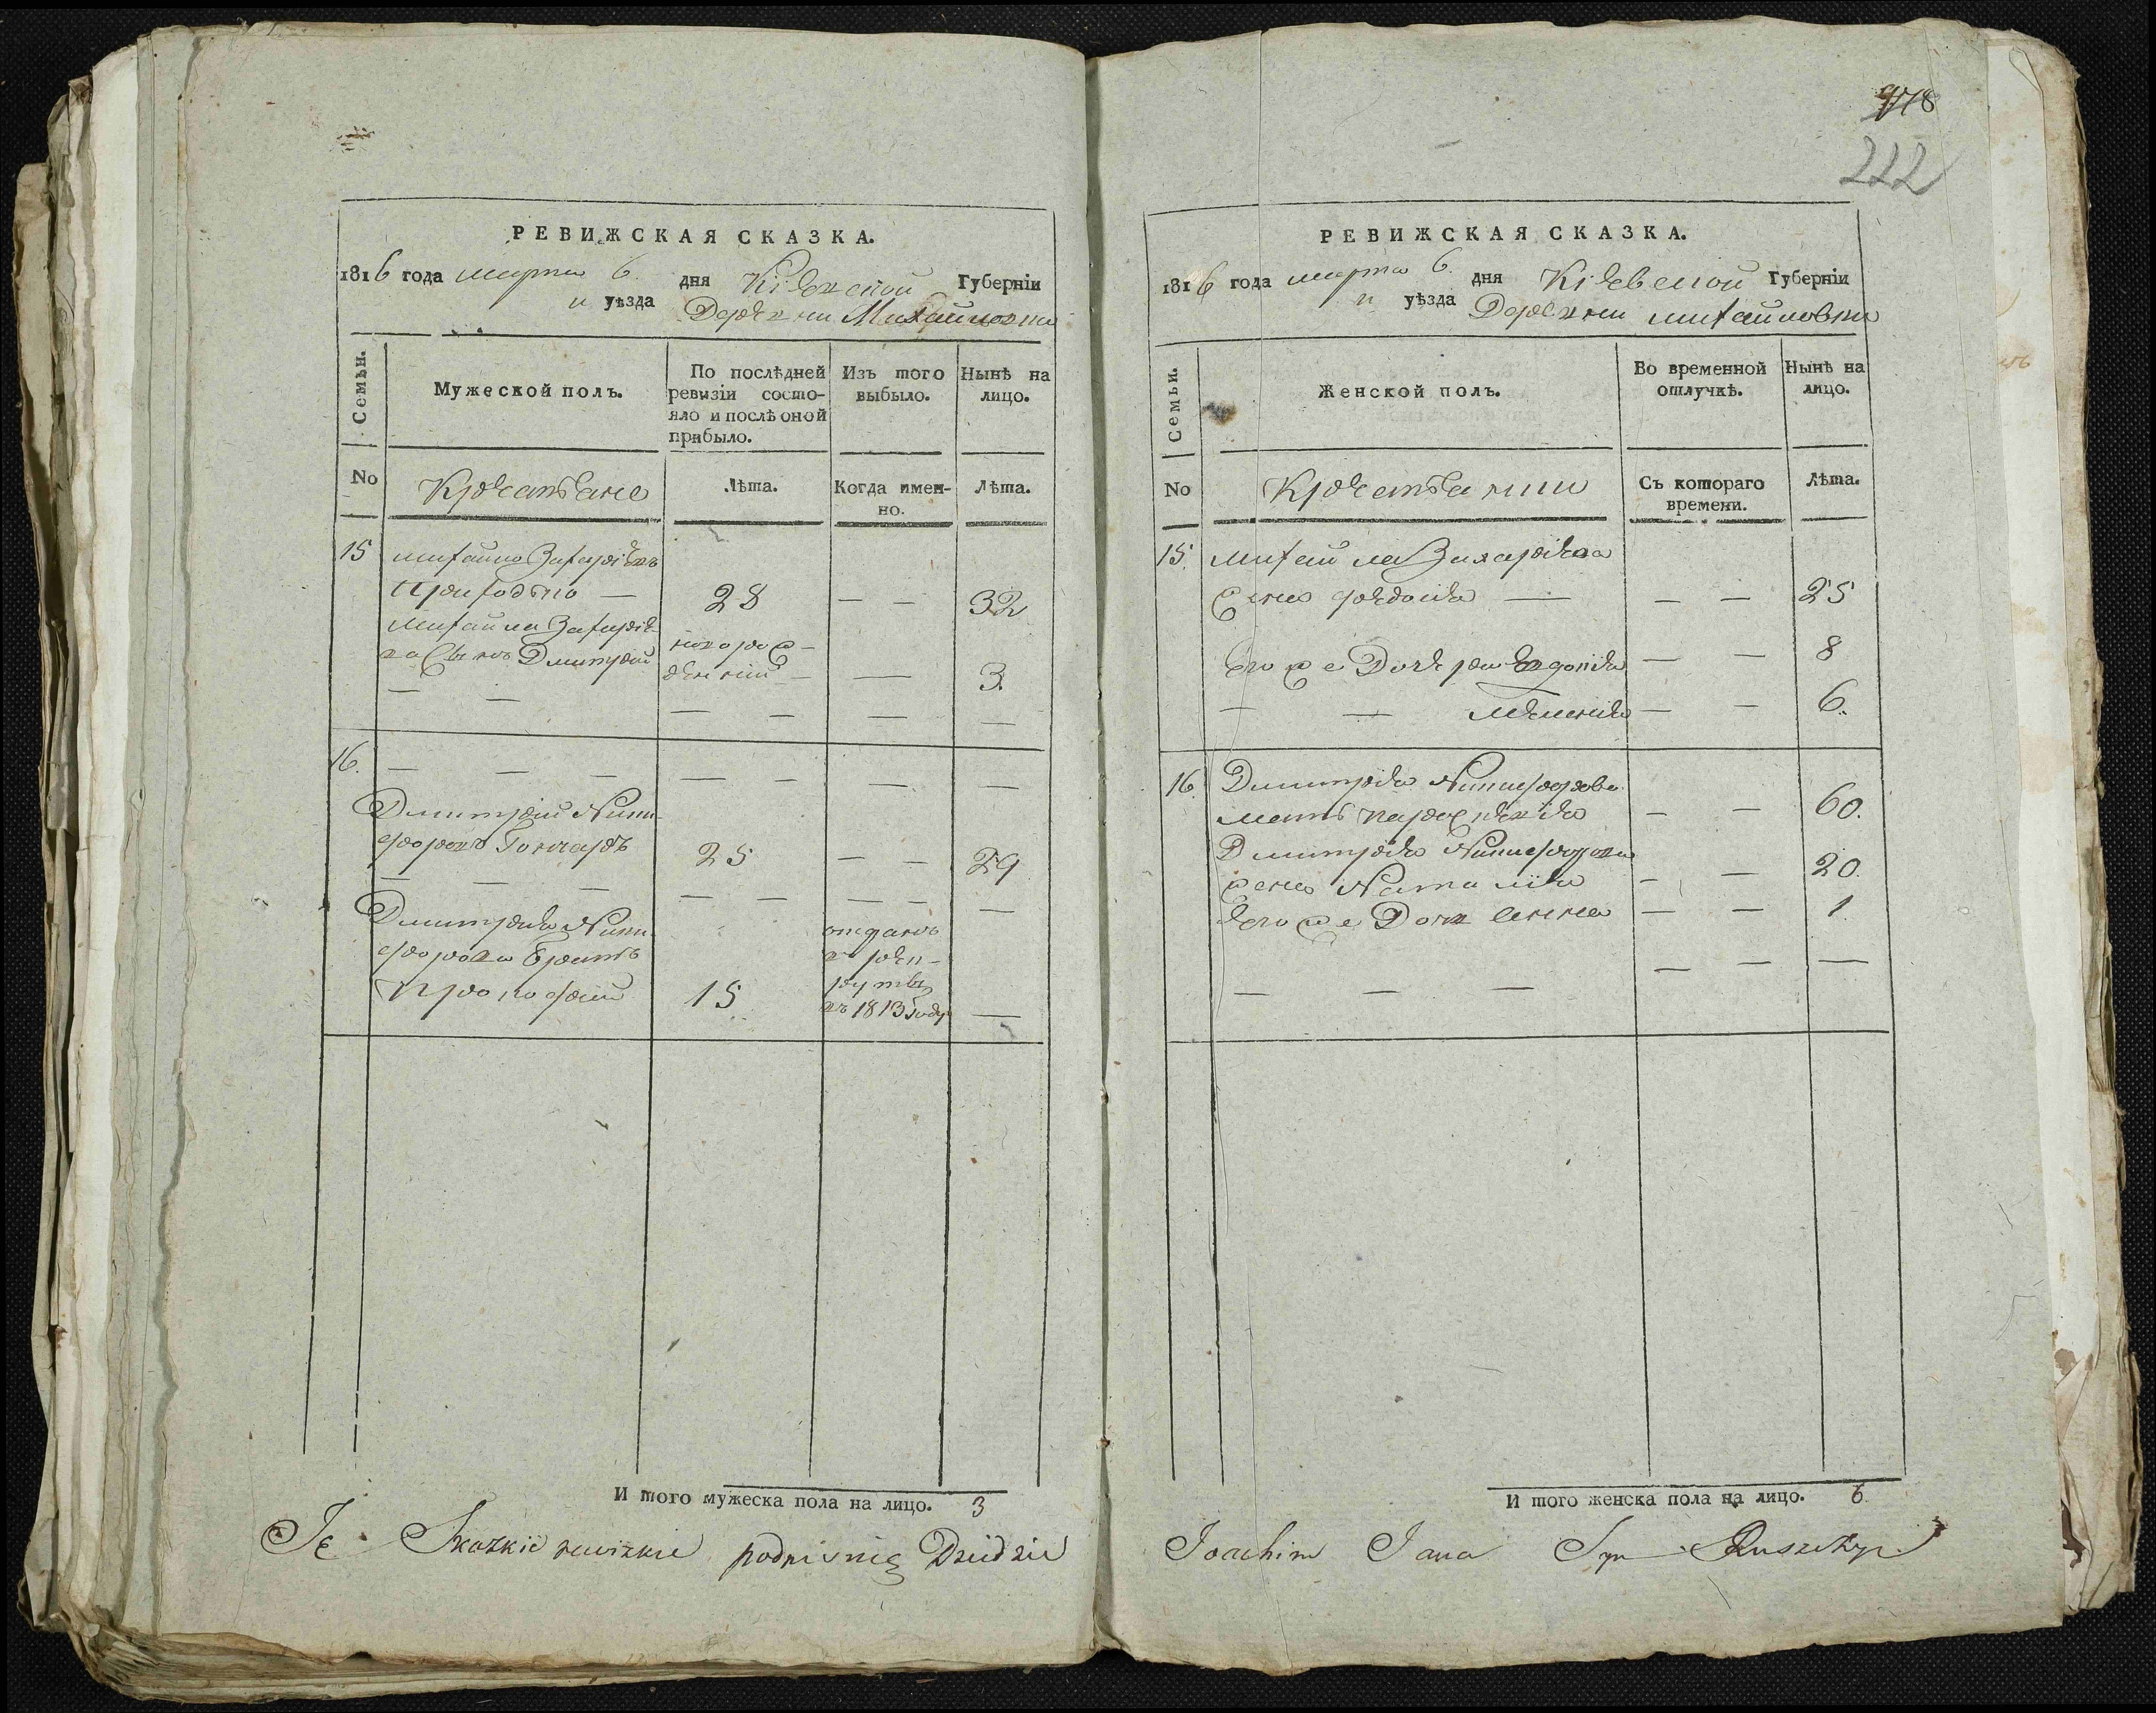 РЕВИЖСКАЯ СКАЗКА.
1816 года марта 6. дня Кіевской Губерніи
уѣзда Деревни Михайловки
Семьи.
Мужеской полъ.
По послѣдней ревизіи состояло и послѣ оной прибыло.
Изъ того выбыло.
Нынѣ на лицо.
No
Крестьяне
Лѣта.
Когда именно.
Лѣта.
15 Михайло Захаріевъ
Приходько — 28 — — 32
Михайла Захаріе-
ва Сынъ Дмитрій
новорож-
денный — — 3.
— —
— — — —
16. — — — — — — —
Дмитрій Ники-
форовъ Гончаръ 25 — — 29
— — — — — — — —
Дмитрія Ники-
форова братъ
Прокофій 15
отданъ
в рек-
руты
въ 1813 году —
И того мужеска пола на лицо. 3
Te Skazkie rewizkie podpisuię Dziedzic
978
222
РЕВИЖСКАЯ СКАЗКА.
1816 года марта 6. дня Кіевской Губерніи
уѣзда Деревни Михайловки
Семьи.
Женской полъ.
Во временной отлучкѣ.
Нынѣ на лицо.
No
Крестьянки
Съ котораго времени.
Лѣта.
15. Михайла Захаріева
Жена — — — 25
Его же Дочери Евдокія — — 8
— — — — 6.
16. Димитрія Никифорова
мать — — 60.
Димитрія Никифорова
жена Наталія — — 20.
Его же Дочь Анна — — 1.
— — — — — —
И того женска пола на лицо. 6
Joachim Jana Syn